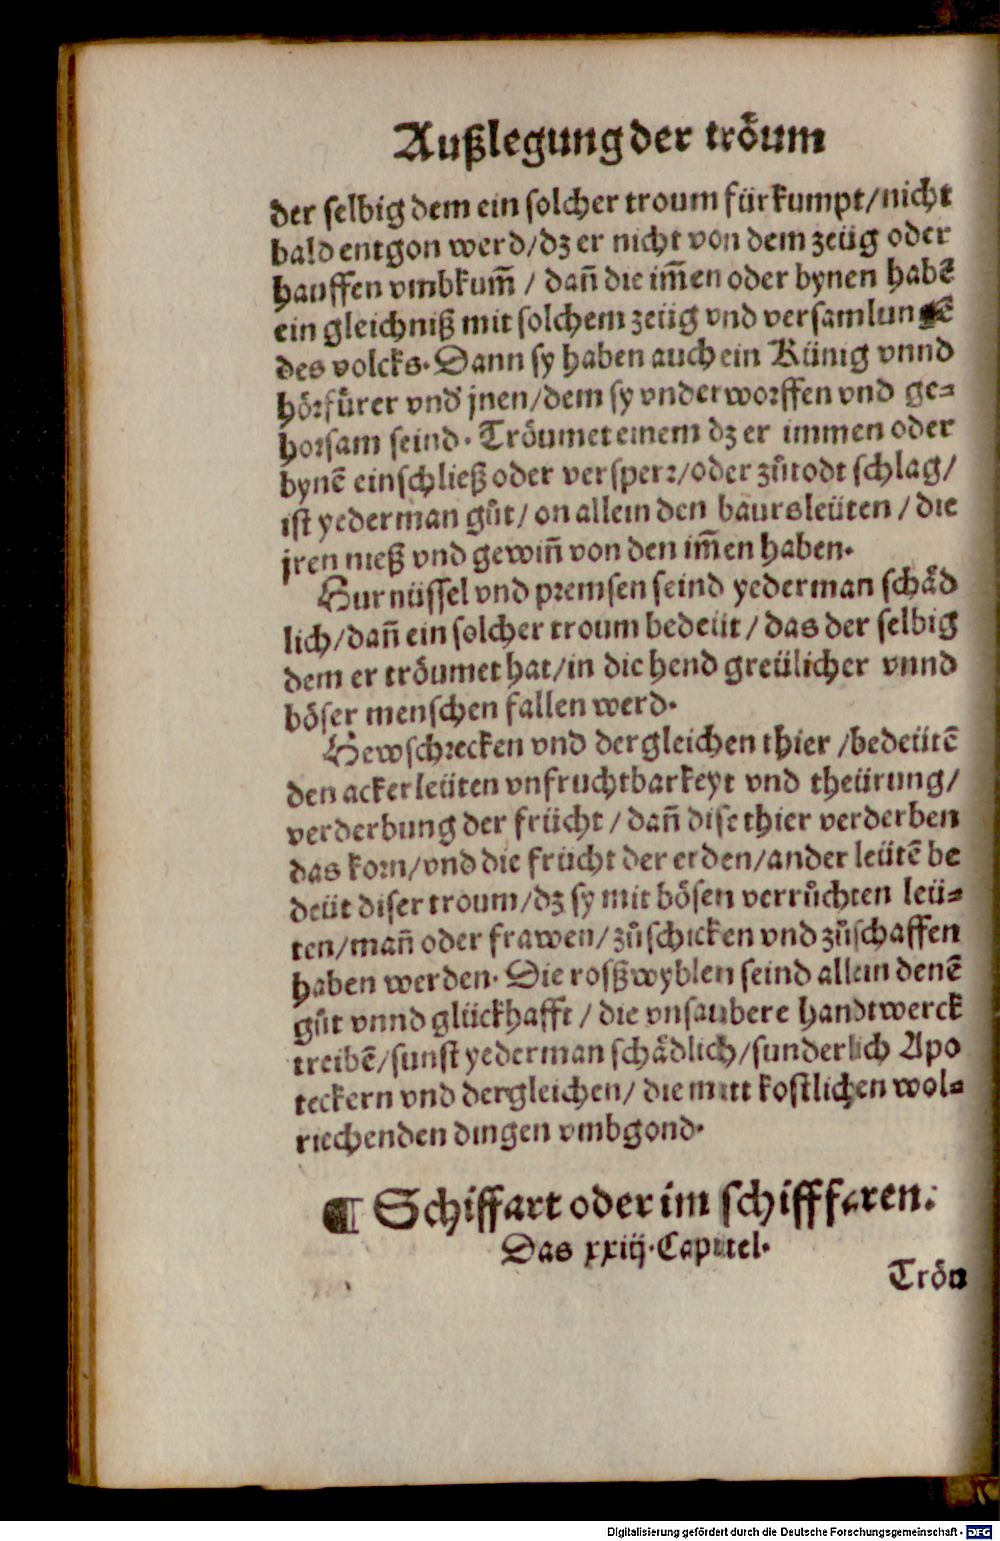 Außlegung der trőum
der selbig dem ein solcher troum fürkumpt/nicht
bald entgon werd/dz er nicht von dem zeüg oder
hauffen vmbkum̃ / dañ die im̃en oder bynen habẽ
ein gleichniß mit solchem zeüg vnd versamlungẽ
des volcks. Dann sy haben auch ein Künig vnnd
hörfürer vnder jnen/dem sy vnderworffen vnd ge-
horsam seind. Tröumet einem dz er immen oder
bynẽ einschließ oder versperr/oder zůtodt schlag/
ist yederman gůt/ on allein den baursleüten / die
jren nieß vnd gewiñ von den im̃en haben.
Hurnüssel vnd premsen seind yederman schäd
lich/dañ ein solcher troum bedeüt / das der selbig
dem er tröumet hat/in die hend greülicher vnnd
böser menschen fallen werd.
Hewschrecken vnd dergleichen thier /bedeütẽ
den ackerleüten vnfruchtbarkeyt vnd theürung/
verderbung der frücht / dañ dise thier verderben
das korn/vnd die frücht der erden/ander leütẽ be
deüt diser troum/dz sy mit bösen verrůchten leü-
ten/mañ oder frawen/zůschicken vnd zůschaffen
haben werden. Die roßwyblen seind allein denẽ
gůt vnnd glückhafft / die vnsaubere handtwerck
treibẽ/sunst yederman schädlich/sunderlich Apo
teckern vnd dergleichen/ die mitt kostlichen wol-
riechenden dingen vmbgond.
¶ Schiffart oder im schiff faren.
Das xxiij. Capittel.
Tröu
Digitalisierung gefördert durch die Deutsche Forschungsgemeinschaft - DFG